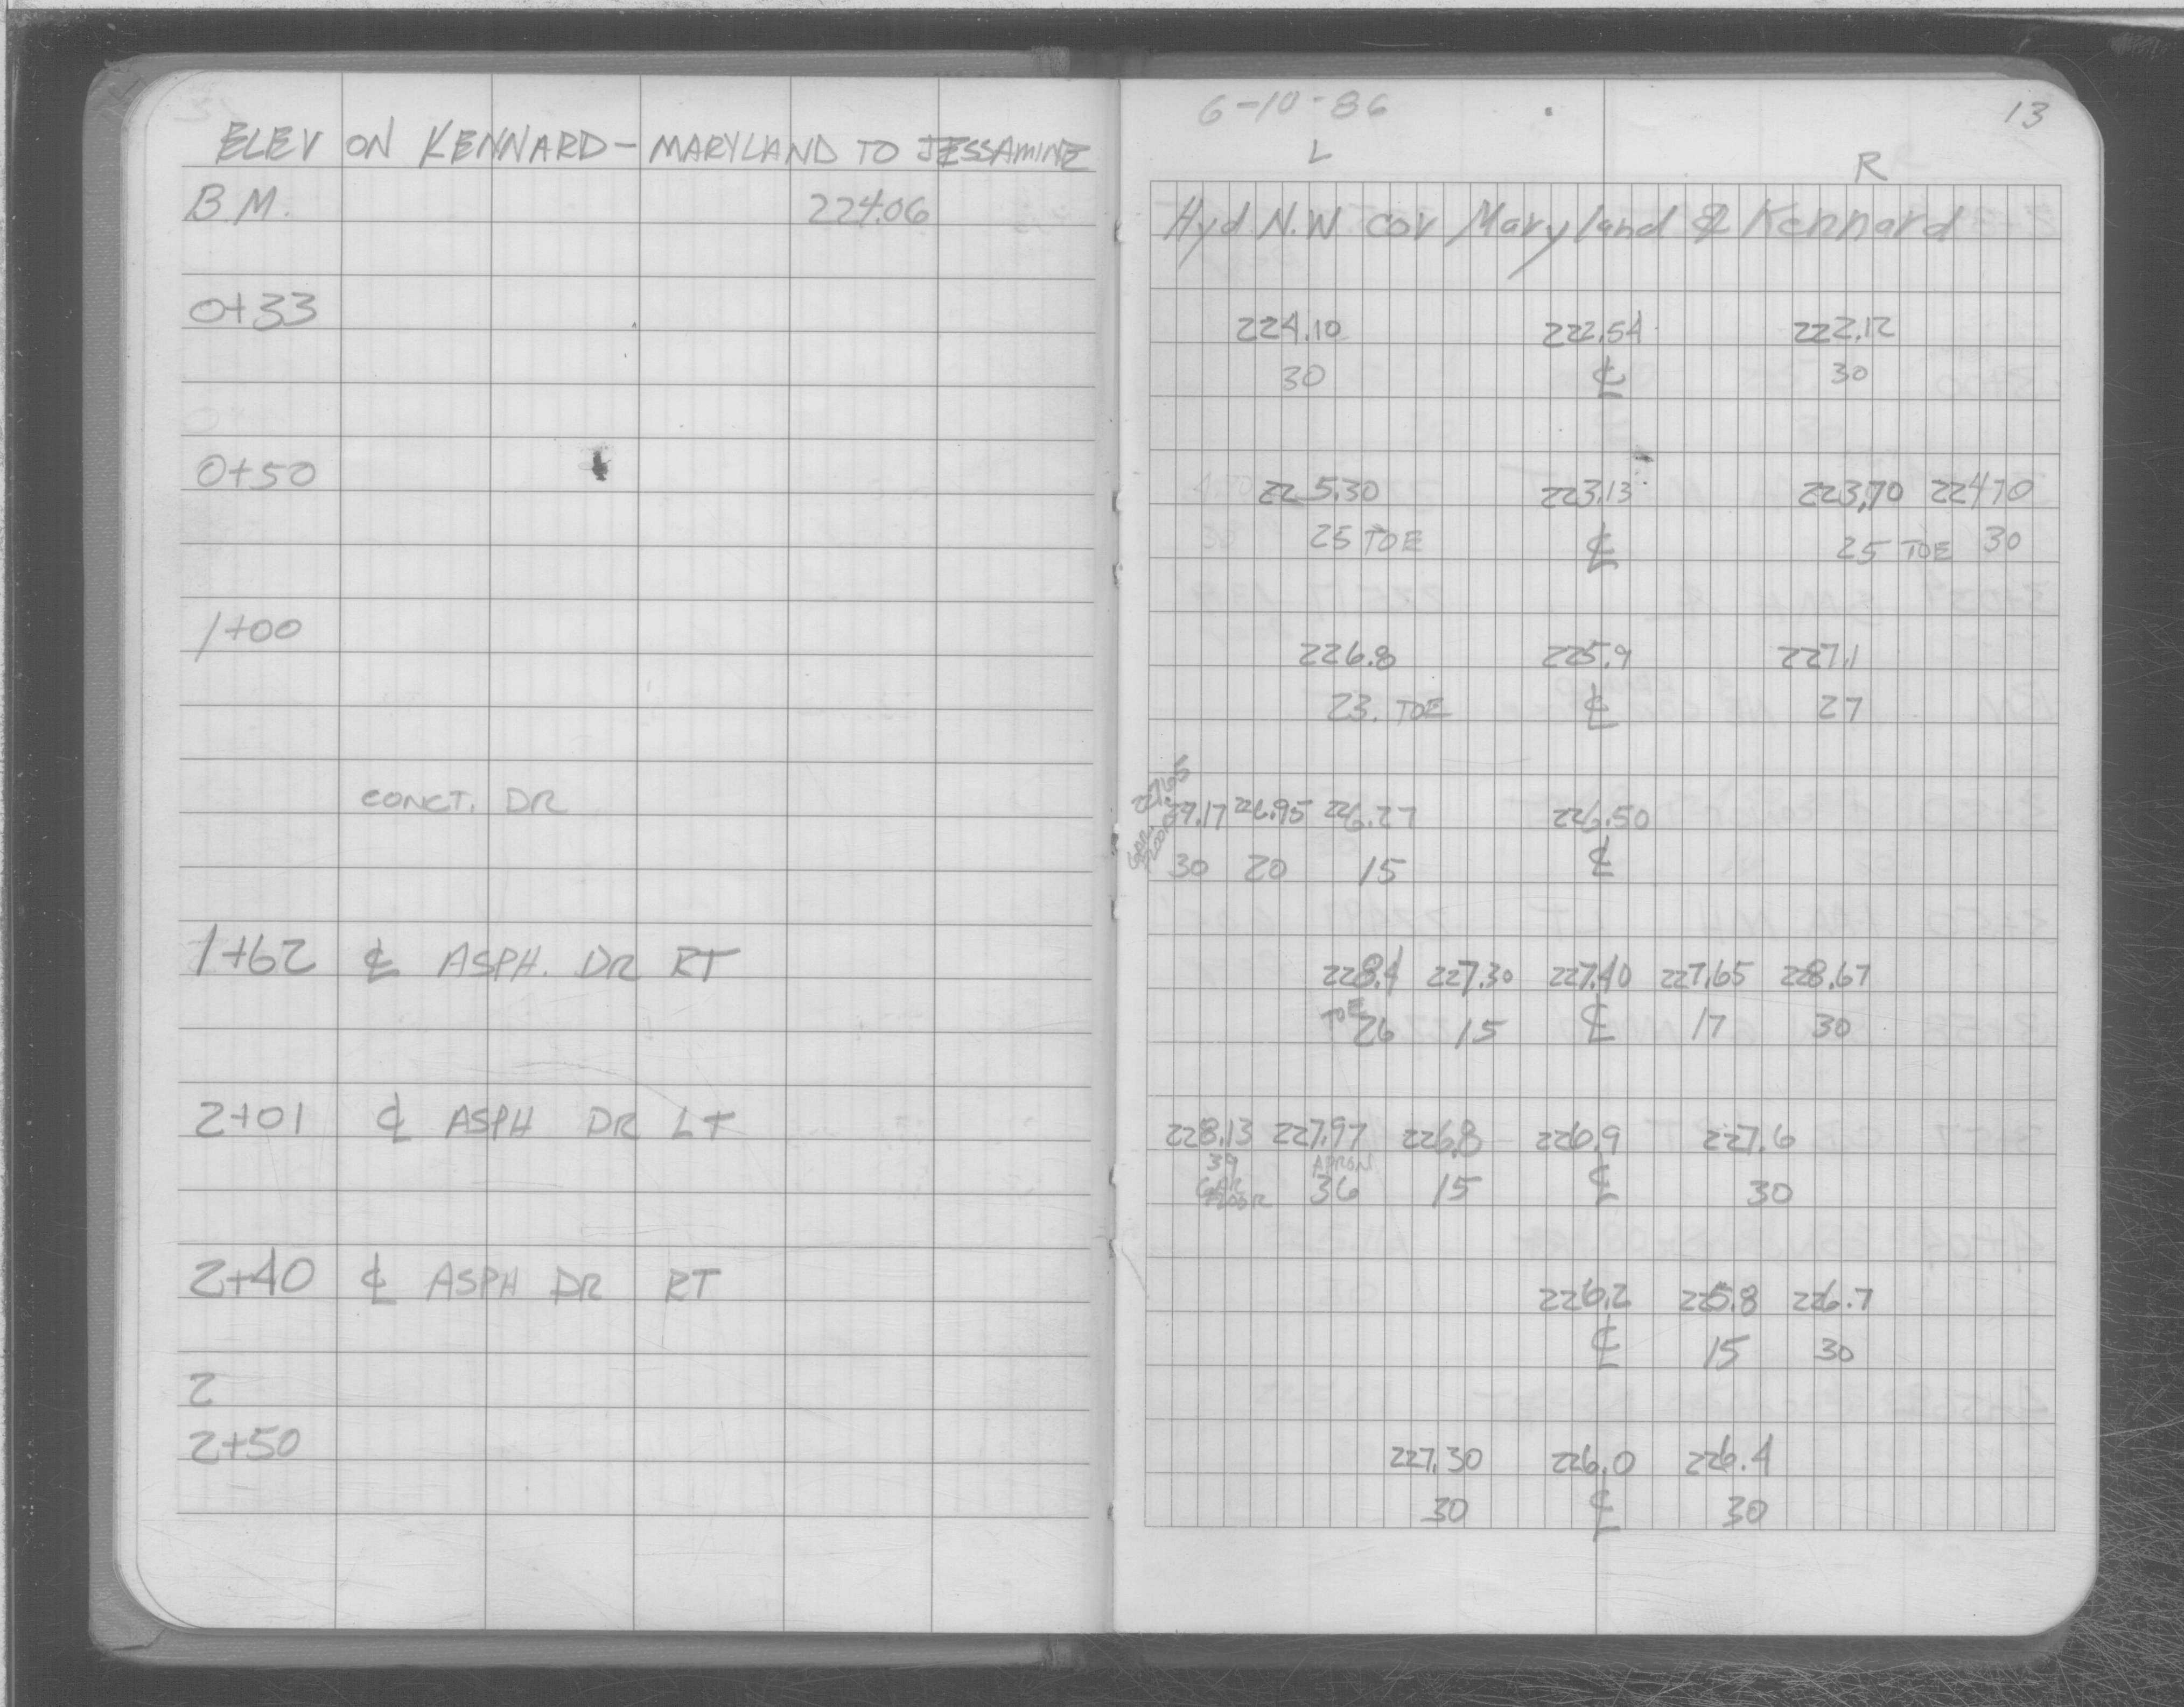 ELEV ON KENNARD - MARYLAND TO JESSAMINE
B.M. 224.06
0+33
0+50
1+00
CONCT. DR
1+62 ℄ ASPH. DR RT
2+01 ℄ ASPH DR LT
2+40 ℄ ASPH DR RT
2
2+50
6-10-86 13
L R
Hyd N.W cor Maryland & Kennard
224.10 222.54 222.12
30 ℄ 30
225.30 223.13 223.70 224.70
25 TOE ℄ 25 TOE 30
226.8 225.9 227.1
23. TOE ℄ 27
227.65
27.17 226.95 226.27 226.50
30 20 15 ℄
228.4 227.30 227.40 227.65 228.67
TOE 26 15 ℄ 17 30
228.13 227.97 226.8 226.9 227.6
39 GAR FLOOR APRON 36 15 ℄ 30
226.2 225.8 226.7
℄ 15 30
227.30 226.0 226.4
30 ℄ 30